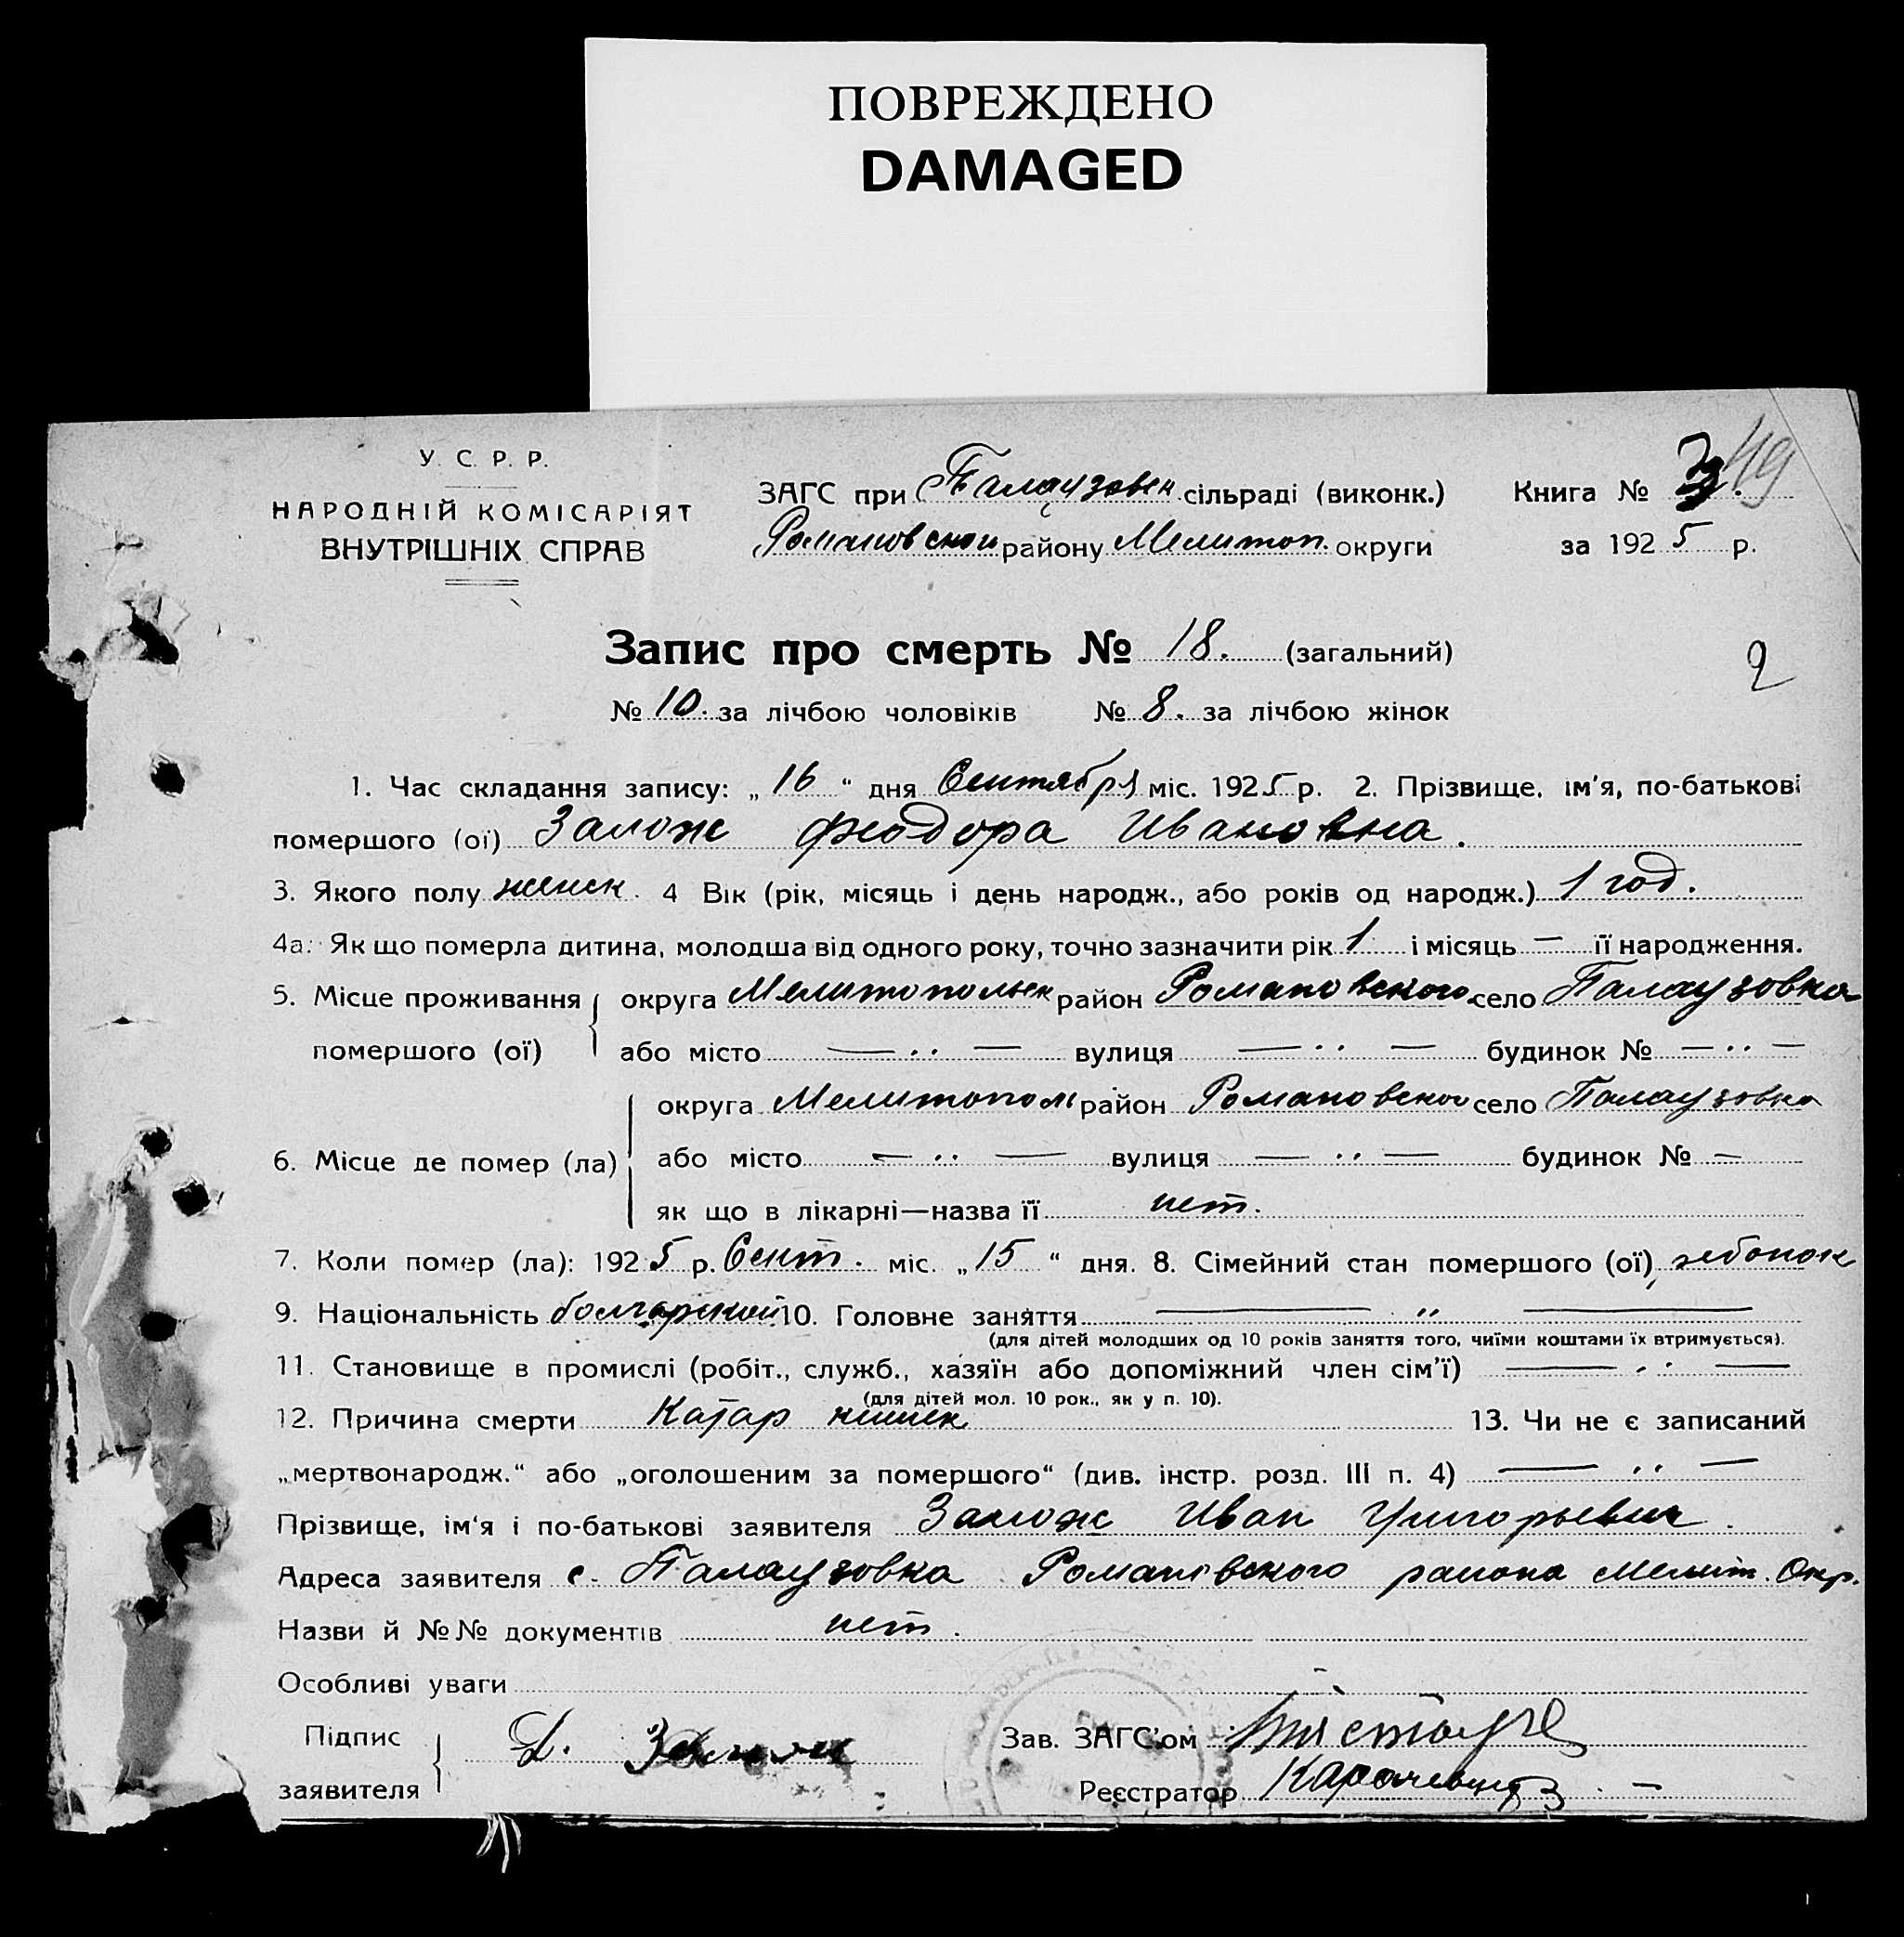 ПОВРЕЖДЕНО
DAMAGED
У. С. Р. Р.
НАРОДНІЙ КОМІСАРІЯТ
ВНУТРІШНІХ СПРАВ
ЗАГС при Палаузовск. сільраді (виконк.)
Романовской району Мелитоп. округи
Книга № 49
за 1925 р.
Запис про смерть № 18. (загальний)
2
№ 10. за лічбою чоловіків № 8. за лічбою жінок
1. Час складання запису: „16“ дня Сентября міс. 1925 р. 2. Прізвище, ім'я, по-батькові
помершого (ої) Залож Феодора Ивановна.
3. Якого полу женск. 4 Вік (рік, місяць і день народж., або років од народж.) 1 год.
4а. Як що померла дитина, молодша від одного року, точно зазначити рік 1 і місяць — її народження.
5. Місце проживання округа Мелитопольск район Романовского село Палаузовка
помершого (ої) або місто — .. — вулиця — .. — будинок № — .. —
округа Мелитопол район Романовского село Палаузовка
6. Місце де помер (ла) або місто — .. — вулиця — .. — будинок № —
як що в лікарні—назва її нет.
7. Коли помер (ла): 1925 р. Сент. міс. „15“ дня. 8. Сімейний стан помершого (ої) ребонок
9. Національність болгарской 10. Головне заняття — „ —
(для дітей молодших од 10 років заняття того, чиїми коштами їх втримується).
11. Становище в промислі (робіт., служб., хазяїн або допоміжний член сім'ї) — .. —
(для дітей мол. 10 рок., як у п. 10).
12. Причина смерти Катар кишек 13. Чи не є записаний
„мертвонародж.“ або „оголошеним за помершого“ (див. інстр. розд. III п. 4) — .. —
Прізвище, ім'я і по-батькові заявителя Залож Иван Григорьевич.
Адреса заявителя с. Палаузовка Романовского района Мелит. Окр.
Назви й №№ документів нет.
Особливі уваги
Підпис
заявителя
Зав. ЗАГС'ом
Реєстратор